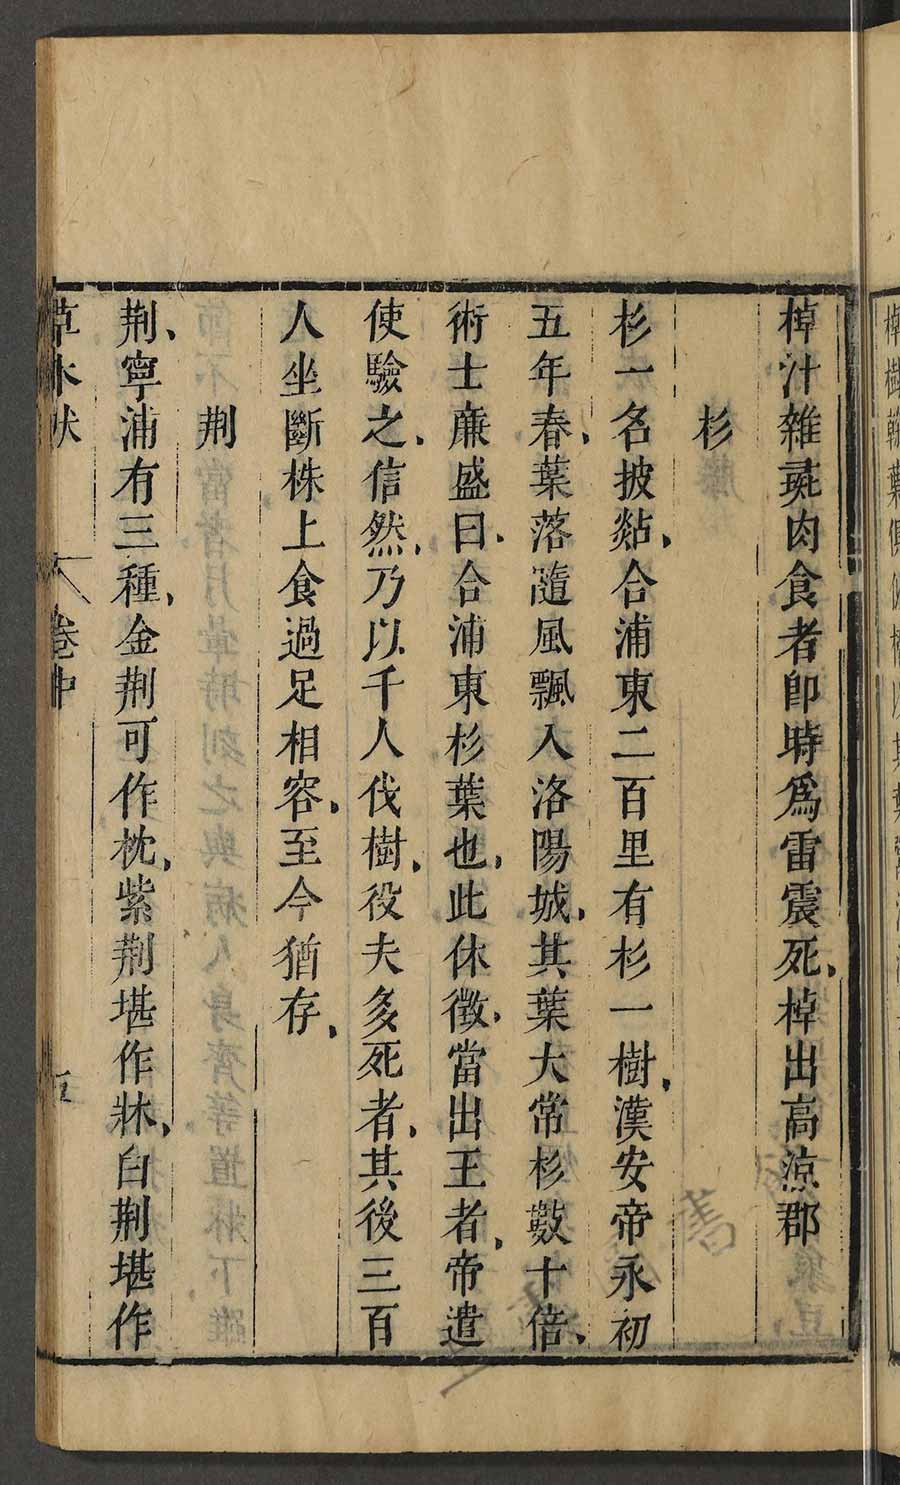 棹汁雜彘肉食者即時爲雷震死、棹出高涼郡
杉
杉一名披㸃、合浦東二百里有杉一樹、漢安帝永初
五年春、葉落隨風飄入洛陽城、其葉大常杉數十倍、
術士廉盛曰、合浦東杉葉也、此休徵、當出王者、帝遣
使驗之、信然、乃以千人伐樹、役夫多死者、其後三百
人坐斷株上食過足相容、至今猶存、
荆
荆、寧浦有三種、金荆可作枕、紫荆堪作牀、白荆堪作
草木狀 卷中 五